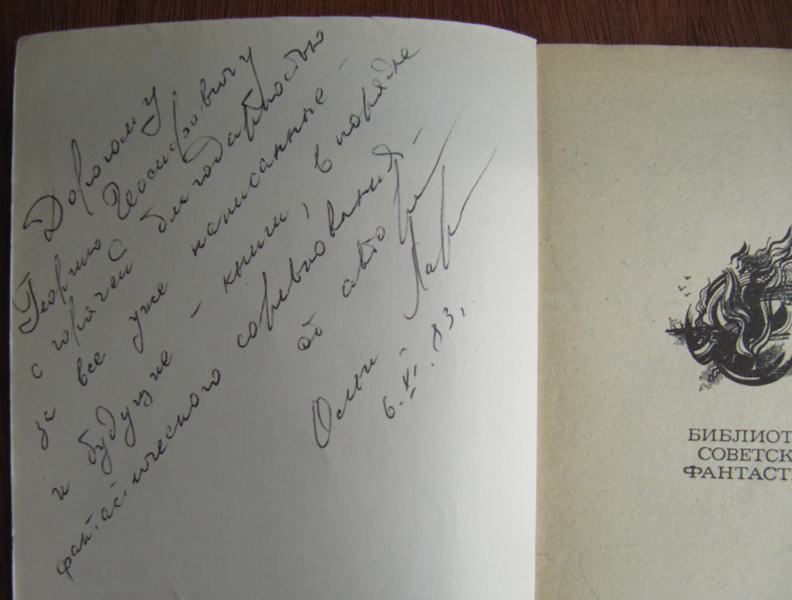 Дорогому
Георгию Иосифовичу
с горячей благодарностью
за все уже написанные –
и будущие – книги, в порядке
фантастического соревнования –
от автора
Ольги Лар
6.XI.83г.
БИБЛИОТ
СОВЕТСК
ФАНТАСТ